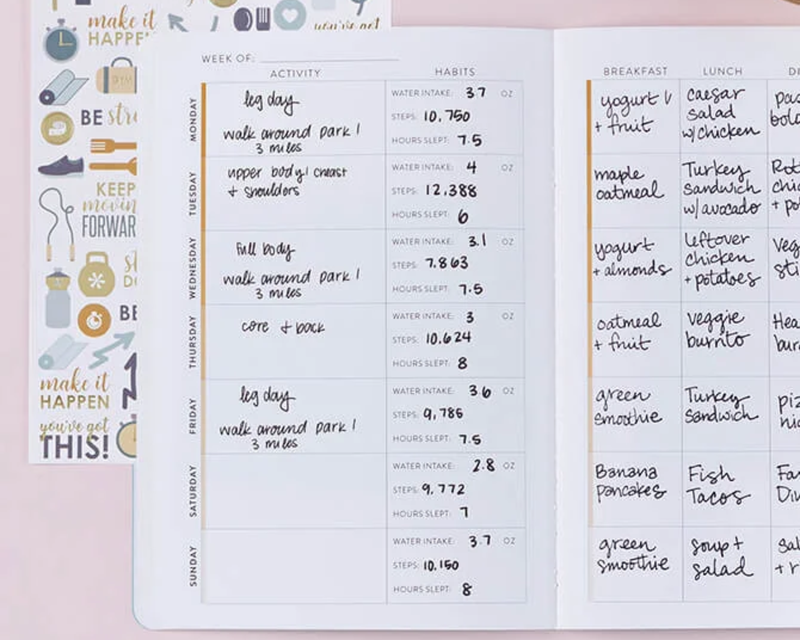 make it
HAPPEN
you've got
BE
KEEP
moving
FORWARD
BE
make it
HAPPEN
you've got
THIS!
WEEK OF:
ACTIVITY HABITS
MONDAY
leg day
walk around park /
3 miles
WATER INTAKE: 3.7 OZ
STEPS: 10,750
HOURS SLEPT: 7.5
TUESDAY
upper body / chest
+ shoulders
WATER INTAKE: 4 OZ
STEPS: 12,388
HOURS SLEPT: 6
WEDNESDAY
full body
walk around park /
3 miles
WATER INTAKE: 3.1 OZ
STEPS: 7,863
HOURS SLEPT: 7.5
THURSDAY
core + back
WATER INTAKE: 3 OZ
STEPS: 10,624
HOURS SLEPT: 8
FRIDAY
leg day
walk around park /
3 miles
WATER INTAKE: 3.6 OZ
STEPS: 9,785
HOURS SLEPT: 7.5
SATURDAY
WATER INTAKE: 2.8 OZ
STEPS: 9,772
HOURS SLEPT: 7
SUNDAY
WATER INTAKE: 3.7 OZ
STEPS: 10,150
HOURS SLEPT: 8
BREAKFAST LUNCH
yogurt
+ fruit
caesar
salad
w/chicken
maple
oatmeal
Turkey
Sandwich
w/ avocado
yogurt
+ almonds
leftover
chicken
+ potatoes
oatmeal
+ fruit
veggie
burrito
green
smoothie
Turkey
Sandwich
Banana
pancakes
Fish
Tacos
green
smoothie
soup +
salad